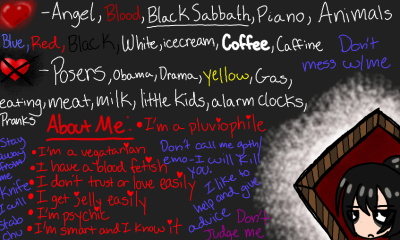 -Angel, Blood, Black Sabbath, Piano, Animals
Blue, Red, Black, White, icecream, Coffee, Caffine
Don't
mess w/me
-Posers, Obama, Drama, yellow, Gas,
eating, meat, milk, little kids, alarm clocks,
Pranks
About Me: • I'm a pluviophile
• I'm a vegatarian
• I have a blood fetish
• I don't trust or love easily
• I get jelly easily
• I'm psychic
• I'm smart and I know it
Stay
away
from
me
Knife
I will
stab
chu
Don't call me goth/
emo-I will kill
you.
I like to
help and give
advice
Don't
Judge me